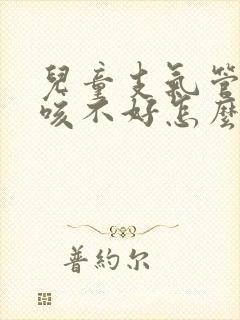 兒童支氣管
咳不好怎麼
普約尔